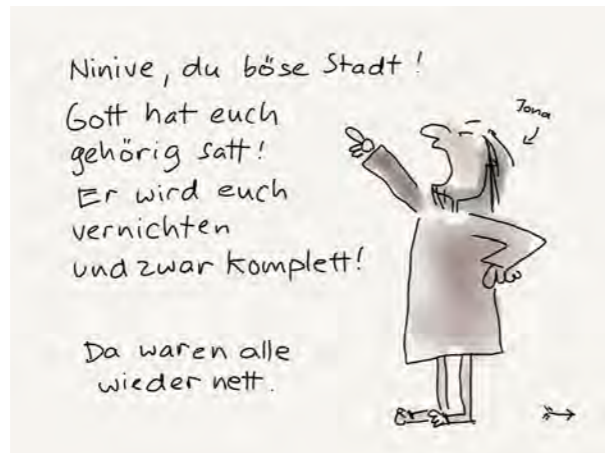 Ninive, du böse Stadt!
Gott hat euch
gehörig satt!
Er wird euch
vernichten
und zwar komplett!
Jona
Da waren alle
wieder nett.